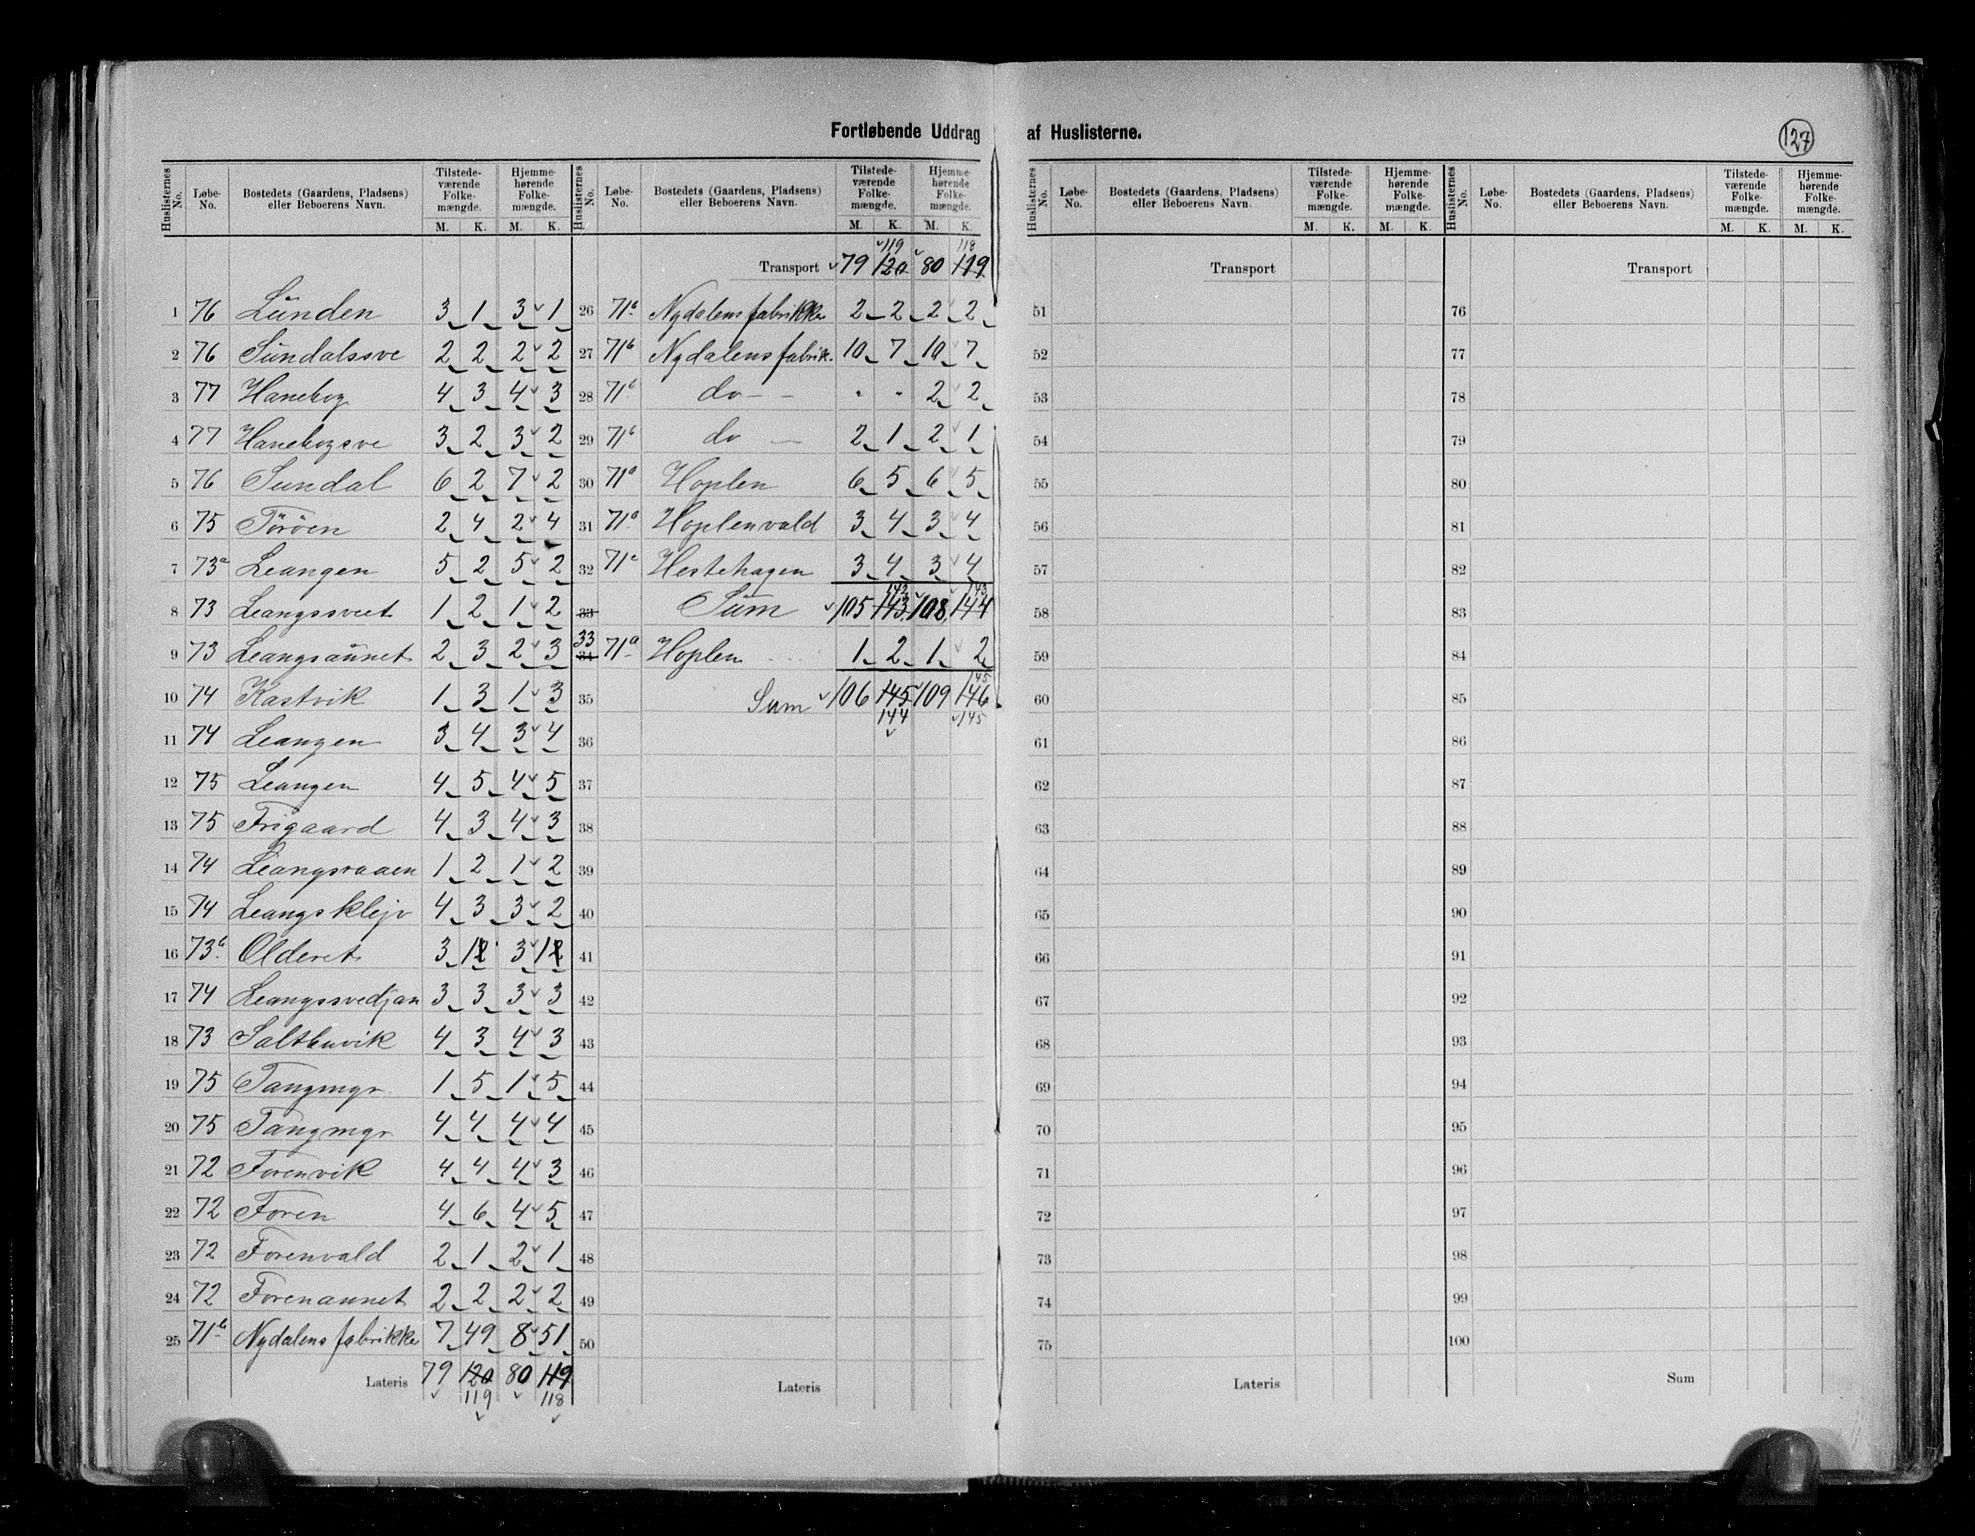 Fortløbende Uddrag af Huslisterne.
127
Huslisternes No. Løbe-No. Bostedets (Gaardens, Pladsens) eller Beboerens Navn. Tilstedeværende Folkemængde. M. K. Hjemmehørende Folkemængde. M. K.
1 76 Lunden 3 1 3 1
2 76 Sundalssve 2 2 2 2
3 77 Hanebog 4 3 4 3
4 77 Hanebogsve 3 2 3 2
5 76 Sundal 6 2 7 2
6 75 Tøröen 2 4 2 4
7 73a Leangen 5 2 5 2
8 73 Leangssveet 1 2 1 2
9 73 Leangsaunet 2 3 2 3
10 74 Kastvik 1 3 1 3
11 74 Leangen 3 4 3 4
12 75 Leangen 4 5 4 5
13 75 Frigaard 4 3 4 3
14 74 Leangsraaen 1 2 1 2
15 74 Leangsklejv 4 3 3 2
16 73b Olderet 3 1 3 1
17 74 Leangssvedjan 3 3 3 3
18 73 Saltbuvik 4 3 4 3
19 75 Tangmyr 1 5 1 5
20 75 Tangmyr 4 4 4 4
21 72 Forenvik 4 4 4 3
22 72 Foren 4 6 4 5
23 72 Forenvald 2 1 2 1
24 72 Forenaunet 2 2 2 2
25 71b Nydalens fabrikke 7 49 8 51
Lateris 79 120 80 119
119 118
Huslisternes No. Løbe-No. Bostedets (Gaardens, Pladsens) eller Beboerens Navn. Tilstedeværende Folkemængde. M. K. Hjemmehørende Folkemængde. M. K.
119 118
Transport 79 120 80 119
26 71b Nydalens fabrikke 2 2 2 2
27 71b Nydalens fabrik. 10 7 10 7
28 71b do - - " " 2 2
29 71b do - 2 1 2 1
30 71a Hoplen 6 5 6 5
31 71a Hoplenvald 3 4 3 4
32 71c Hestehagen 3 4 3 4
143 143
33 Sum 105 143 108 144
33 34 71a Hoplen 1 2 1 2
145
35 Sum 106 145 109 146
144 145
36
37
38
39
40
41
42
43
44
45
46
47
48
49
50
Lateris
Huslisternes No. Løbe-No. Bostedets (Gaardens, Pladsens) eller Beboerens Navn. Tilstedeværende Folkemængde. M. K. Hjemmehørende Folkemængde. M. K.
Transport
51
52
53
54
55
56
57
58
59
60
61
62
63
64
65
66
67
68
69
70
71
72
73
74
75
Lateris
Huslisternes No. Løbe-No. Bostedets (Gaardens, Pladsens) eller Beboerens Navn. Tilstedeværende Folkemængde. M. K. Hjemmehørende Folkemængde. M. K.
Transport
76
77
78
79
80
81
82
83
84
85
86
87
88
89
90
91
92
93
94
95
96
97
98
99
100
Sum